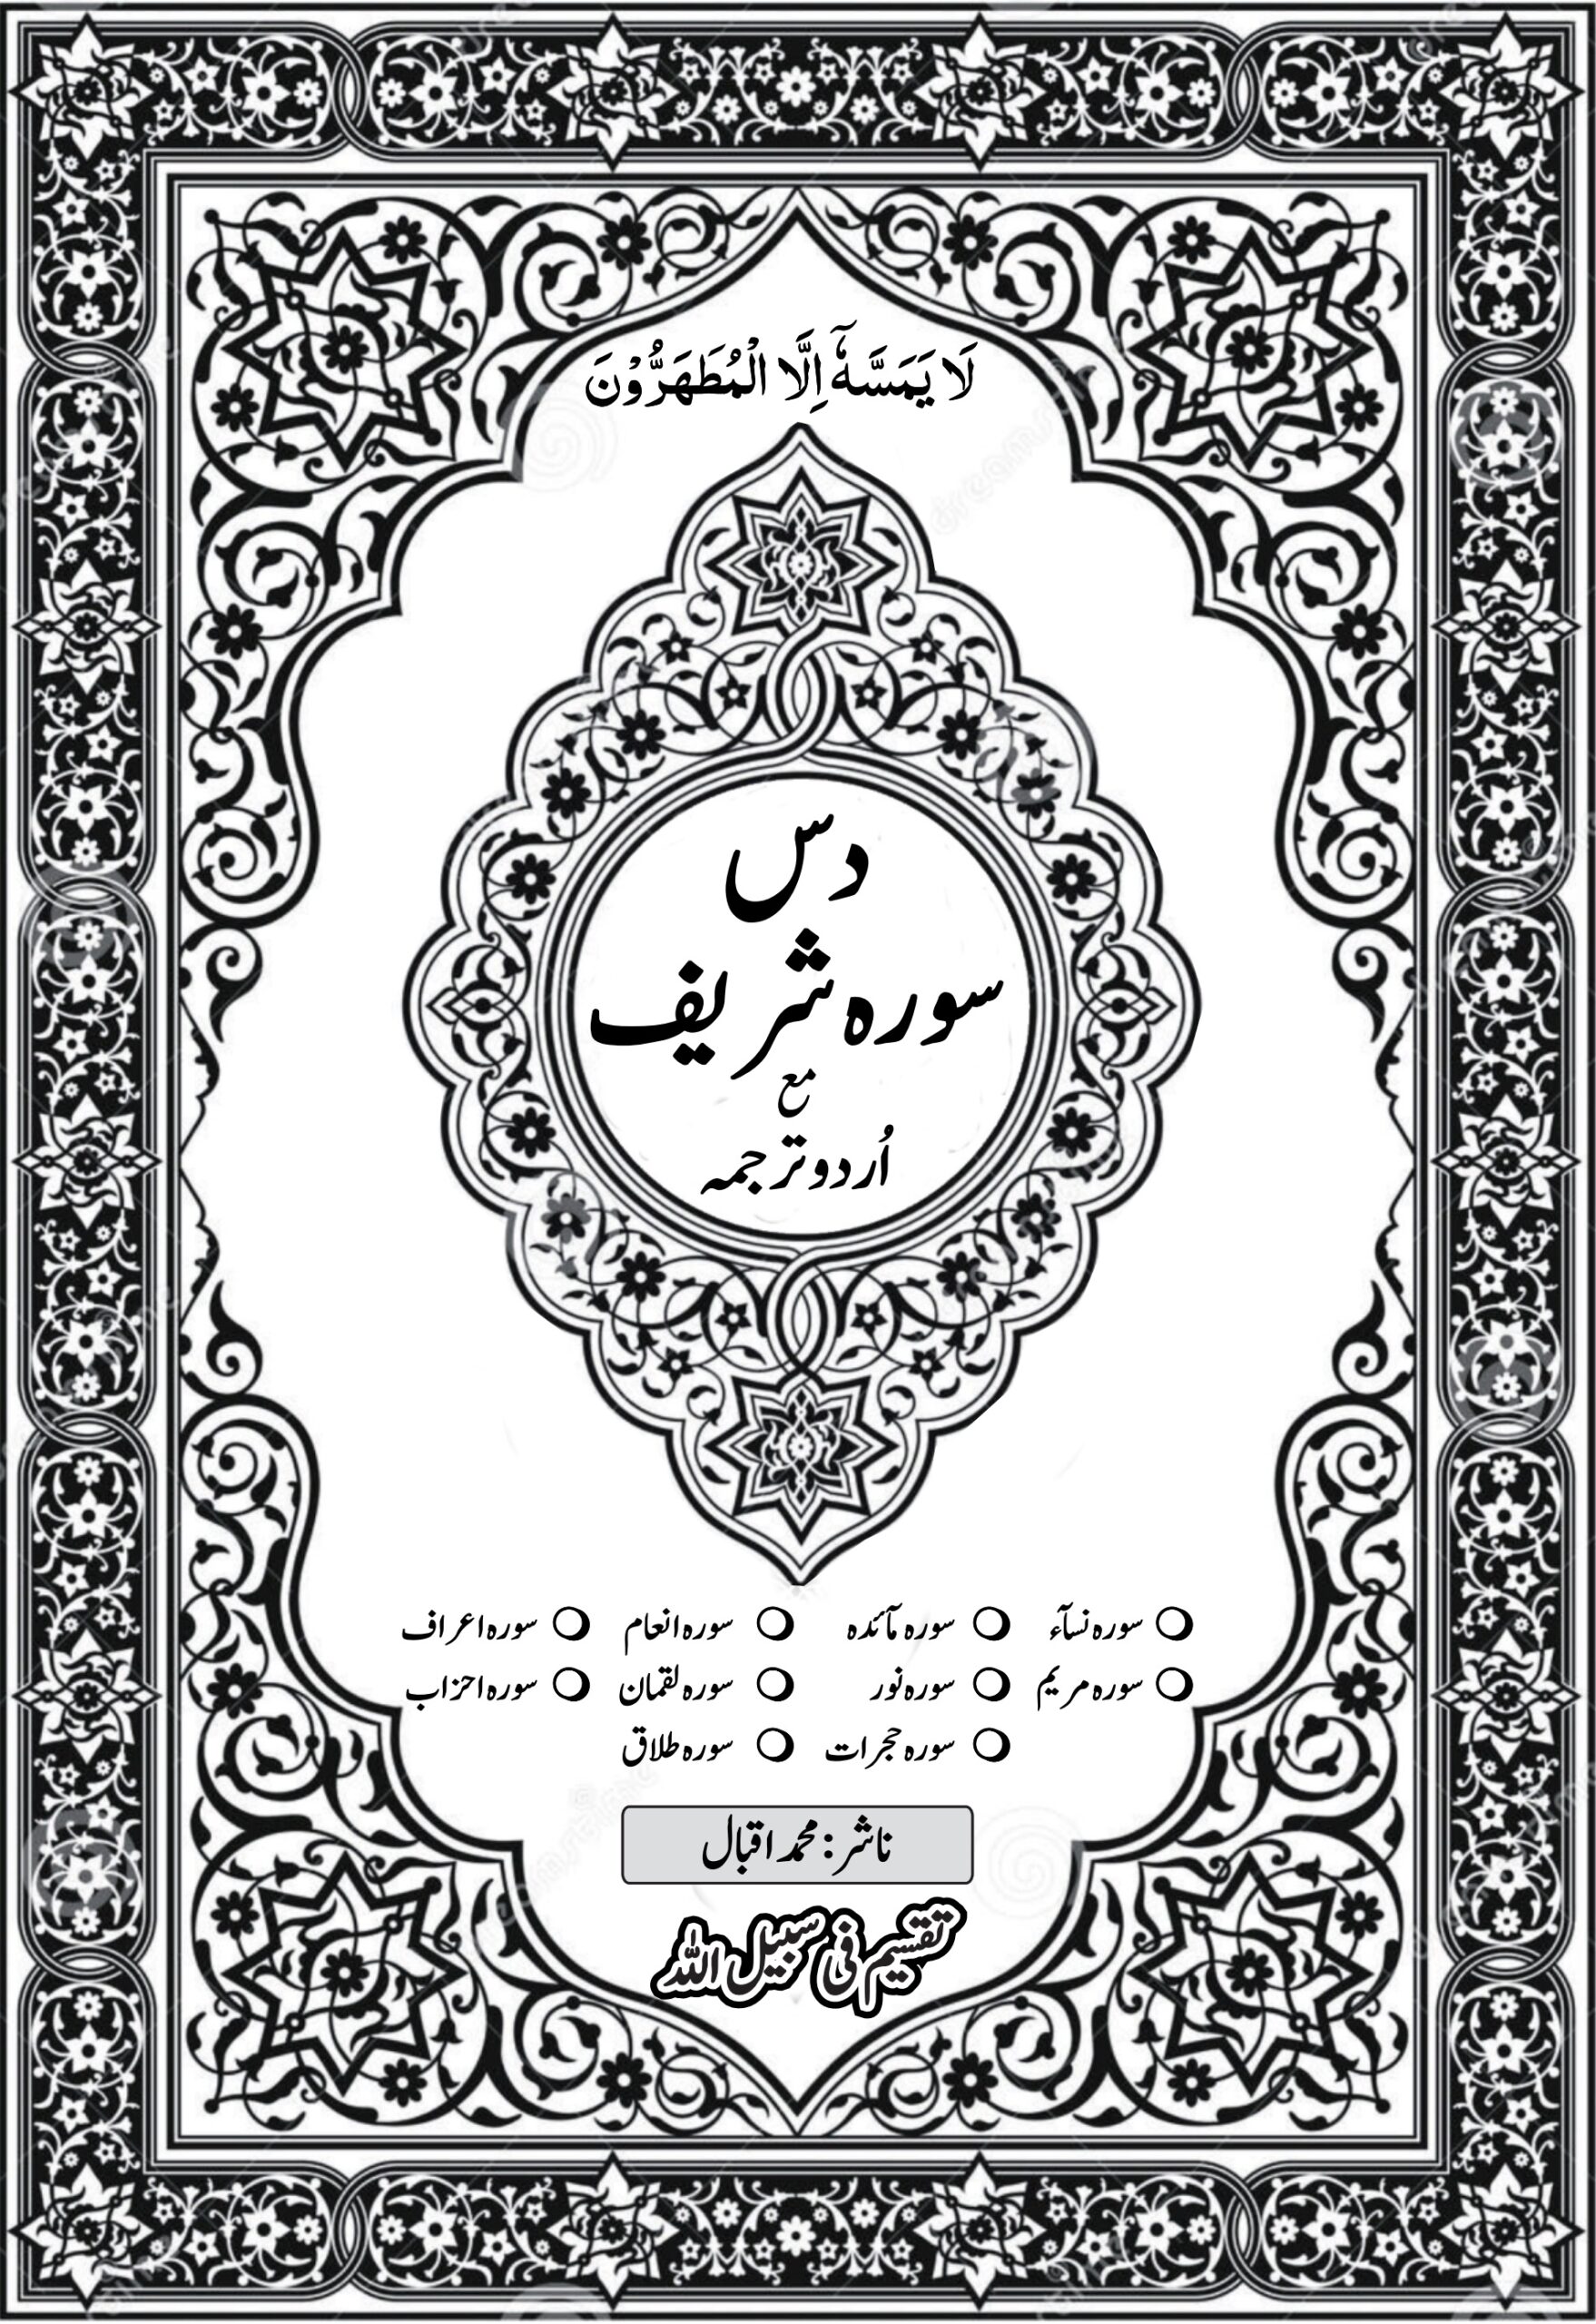 لَا يَمَسَّهٗٓ اِلَّا الْمُطَهَرُّوْنَ
دس
سورہ شریف
مع
اُردو ترجمہ
سورہ نسآء سورہ مآئدہ سورہ انعام سورہ اعراف
سورہ مریم سورہ نور سورہ لقمان سورہ احزاب
سورہ حجرات سورہ طلاق
ناشر : محمد اقبال
تقسیم فی سبیل اللہ